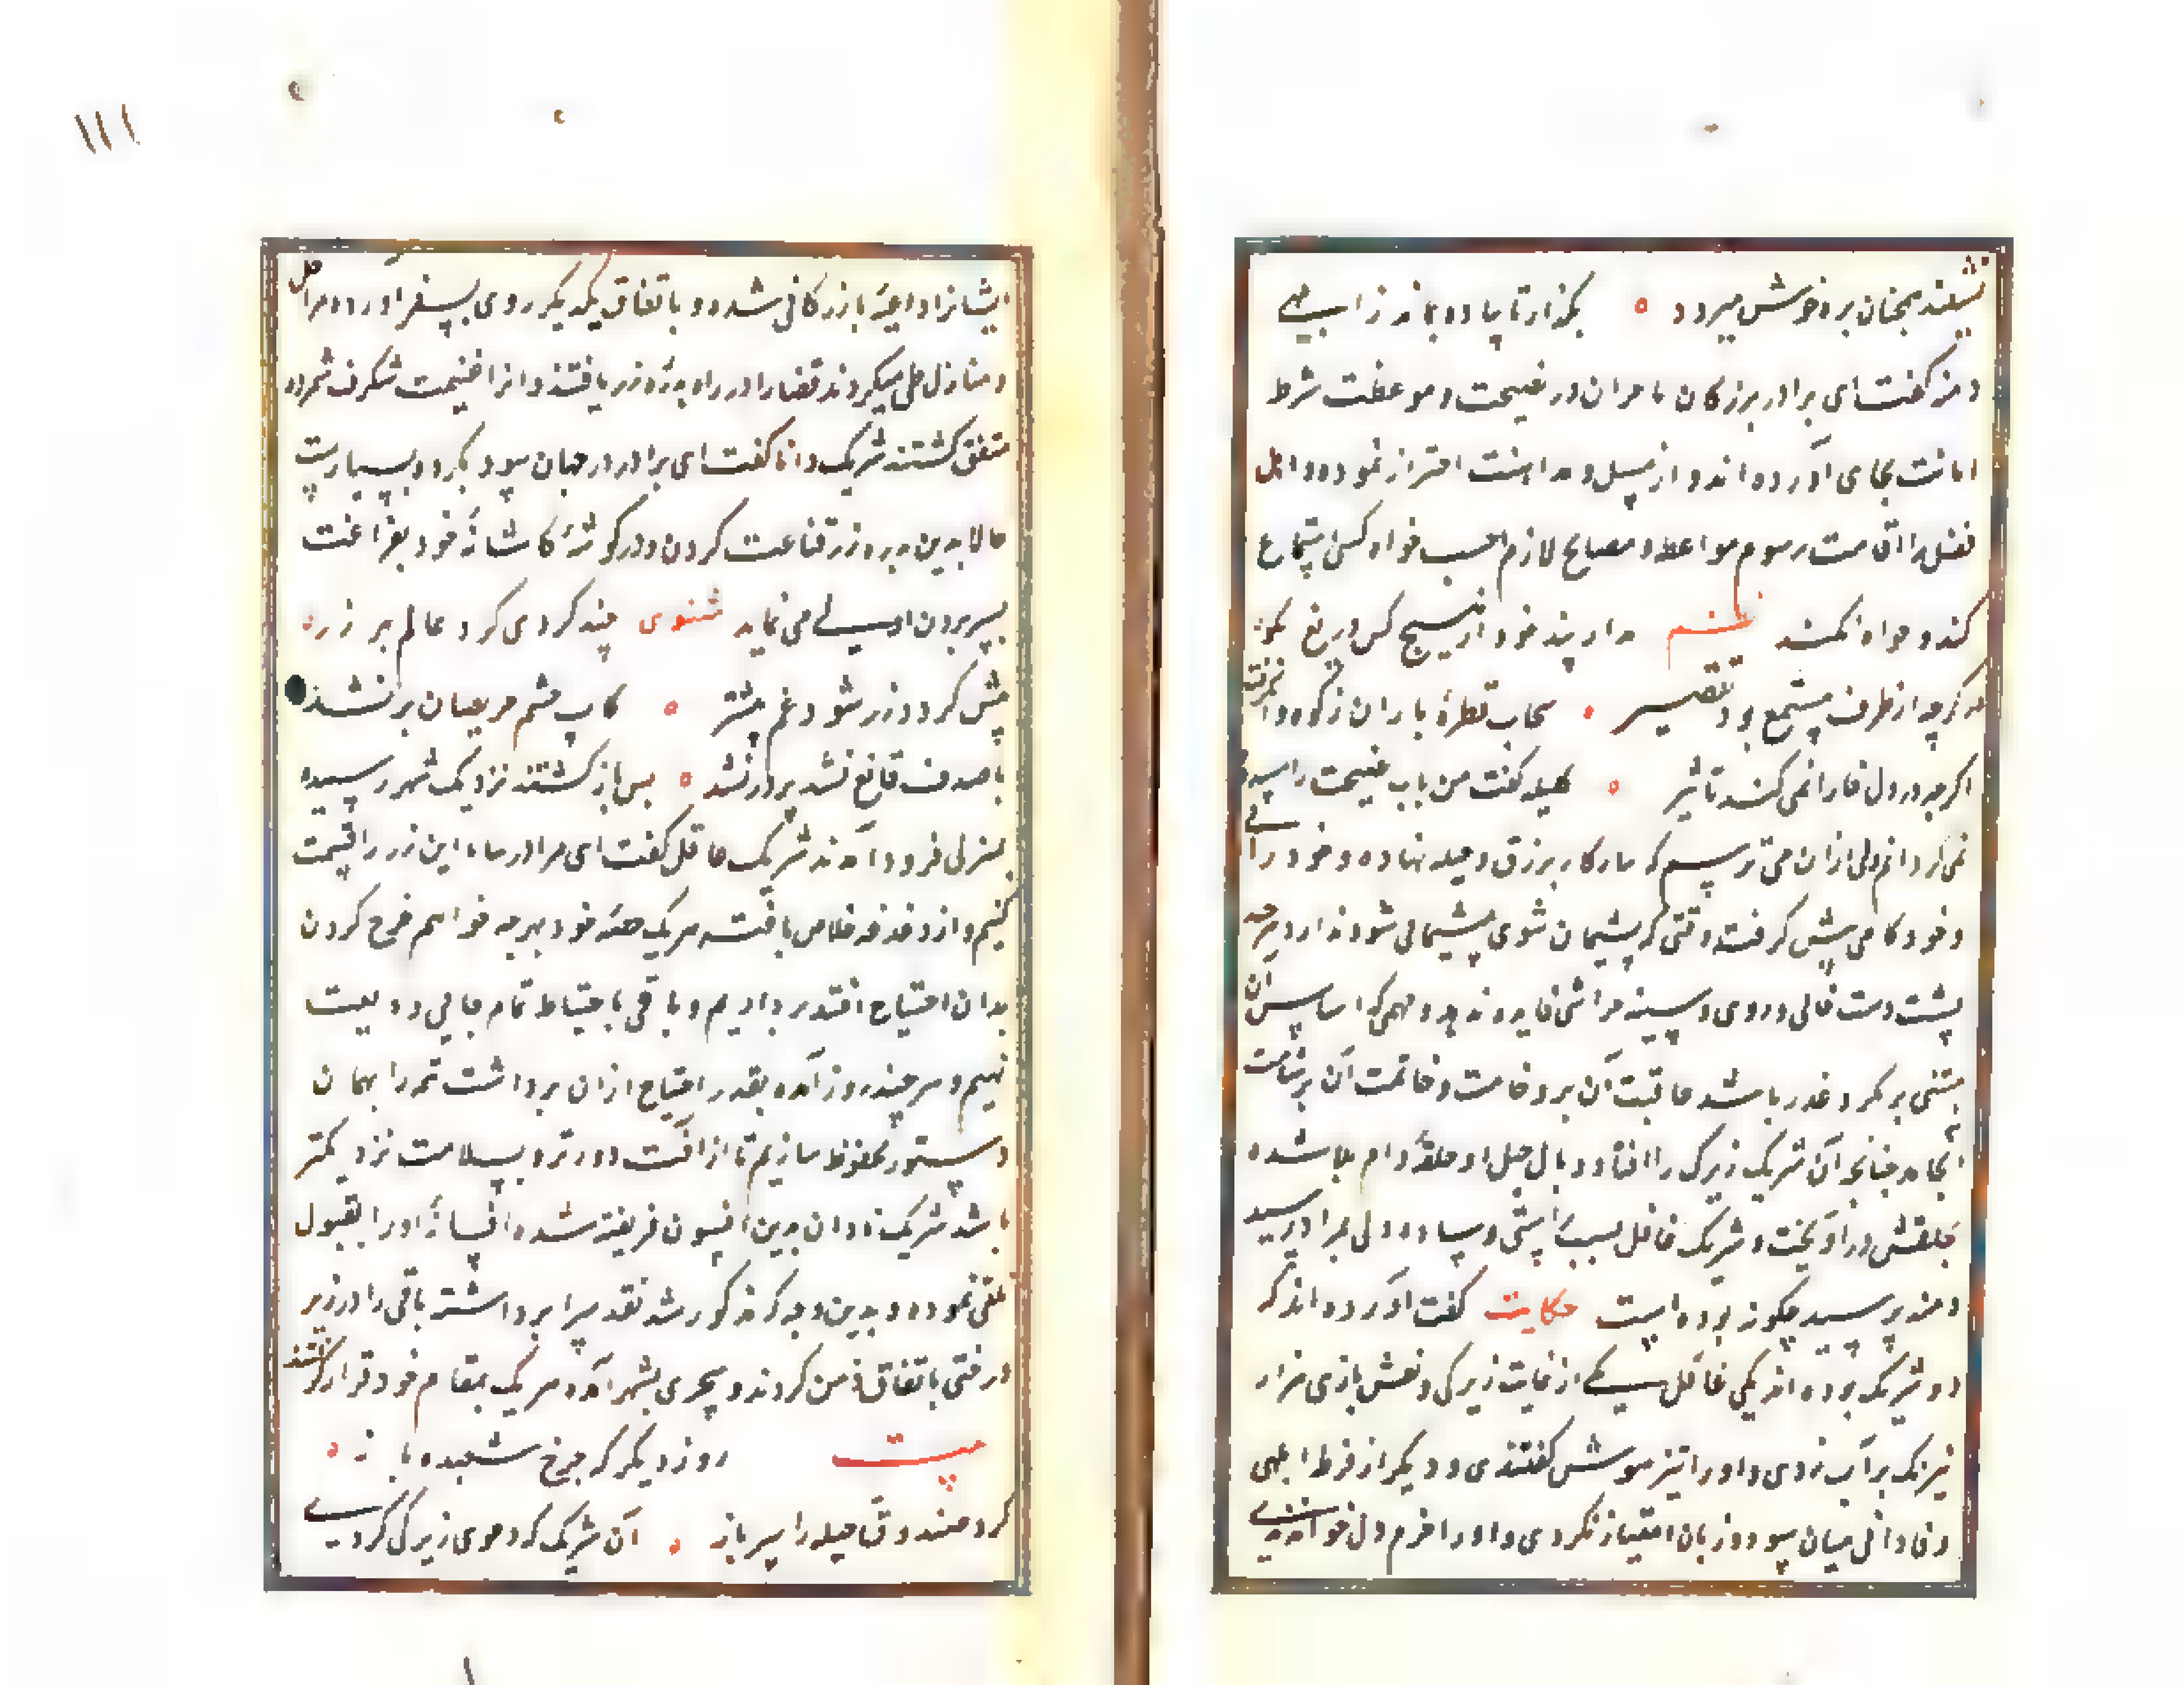 نشیند همچنان بر خوش میرود ه بگذار تا پیاده بماند ز اسب
دمنه گفت ای برادر بزرگان ما مران در نصیحت و موعظت شرط
امانت بجای آورده اند و از میل و مداهنت احتراز نموده و اهل
فضل را اقامت رسوم مواعظ و مصالح لازم است خواه کسی استماع
کند و خواه نکند نظم مدار پند خود از هیچ کس دریغ و بگو
اگرچه از طرف مستمع بود تقصیر ه سحاب قطرهٔ باران ز کوه وا نگرفت
اگرچه در دل خارا نمی کند تاثیر ه کلیله گفت من باب نصیحت را بسته
نمی گردانم ولی ازان می ترسم که کار بر زرق و حیله نهاده و خود رایی
و خود کامی پیش گرفته وقتی که پشیمان شوی پشیمانی سود ندارد هر چند
پشت دست خائی و روی و سینه خراشی فایده ندهد و مهمی که اساس آن
مبتنی بر مکر و غدر باشد عاقبت آن بر وخامت و خاتمت آن بر شامت
انجامد چنانچه آن شریک زیرک را افتاد و وبال حیل او حلقهٔ دام بلا شده
بحلقش در آویخت و شریک غافل بسبب راستی و ساده دلی بمراد رسید
دمنه پرسید چگونه بوده است حکایت گفت آورده اند که
دو شریک بوده اند یکی عاقل یکی از غایت زیرکی و نقش بازی هزار
نیرنگ بر آب زدی و او را تیز هوش گفتندی و دیگر از فرط ابلهی
و نادانی میان سود و زیان امتیاز نکردی و او را خرم دل خواندندی
۱۱۱
ایشانرا داعیهٔ بازرگانی شده و باتفاق یکدیگر روی بسفر آورده مراحل
و منازل طی میکردند قضارا در راه بدرهٔ زر یافتند و انرا غنیمت شگرف شمرده
متفق گشتند شریک دانا گفت ای برادر در جهان سود نکرده بسیارست
حالا بدین بدره زر قناعت کردن و در گوشهٔ کاشانهٔ خود بفراغت
بسر بردن اولی می نماید مثنوی چند گردی گرد عالم بهر زر ه
بیش گردد زر شود غم بیشتر ه کاسه چشم حریصان پر نشد
تا صدف قانع نشد پر در نشد ه پس باز گشتند نزدیک شهر رسیده
بمنزلی فرود آمدند شریک عاقل گفت ای برادر بیا این زر را قسمت
کنیم و از دغدغه خلاص یافته هر یک حصهٔ خود بهرچه خواهیم خرج کردن
بدان احتیاج افتد برداریم و باقی باحتیاط تمام جایی ودیعت
نهیم و هر چند روز آمده بقدر احتیاج ازان برداشت تمه را بهمان
دستور محفوظ سازیم تا از آفت دورتر و بسلامت نزدیکتر
باشد شریک نادان بدین افسون فریفته شده افسانهٔ او را بقبول
تلقی نموده و بدین وجه که مذکور شد نقد سرا برداشته باقی را در زیر
درختی باتفاق دفن کردند و سحری بشهر آمده هر یک بمقام خود قرار گرفتند
بیت روز دیگر که چرخ شعبده باز ه
کرد صندوق حیله را سر باز ه آن شریک که دعوی زیرکی کردی